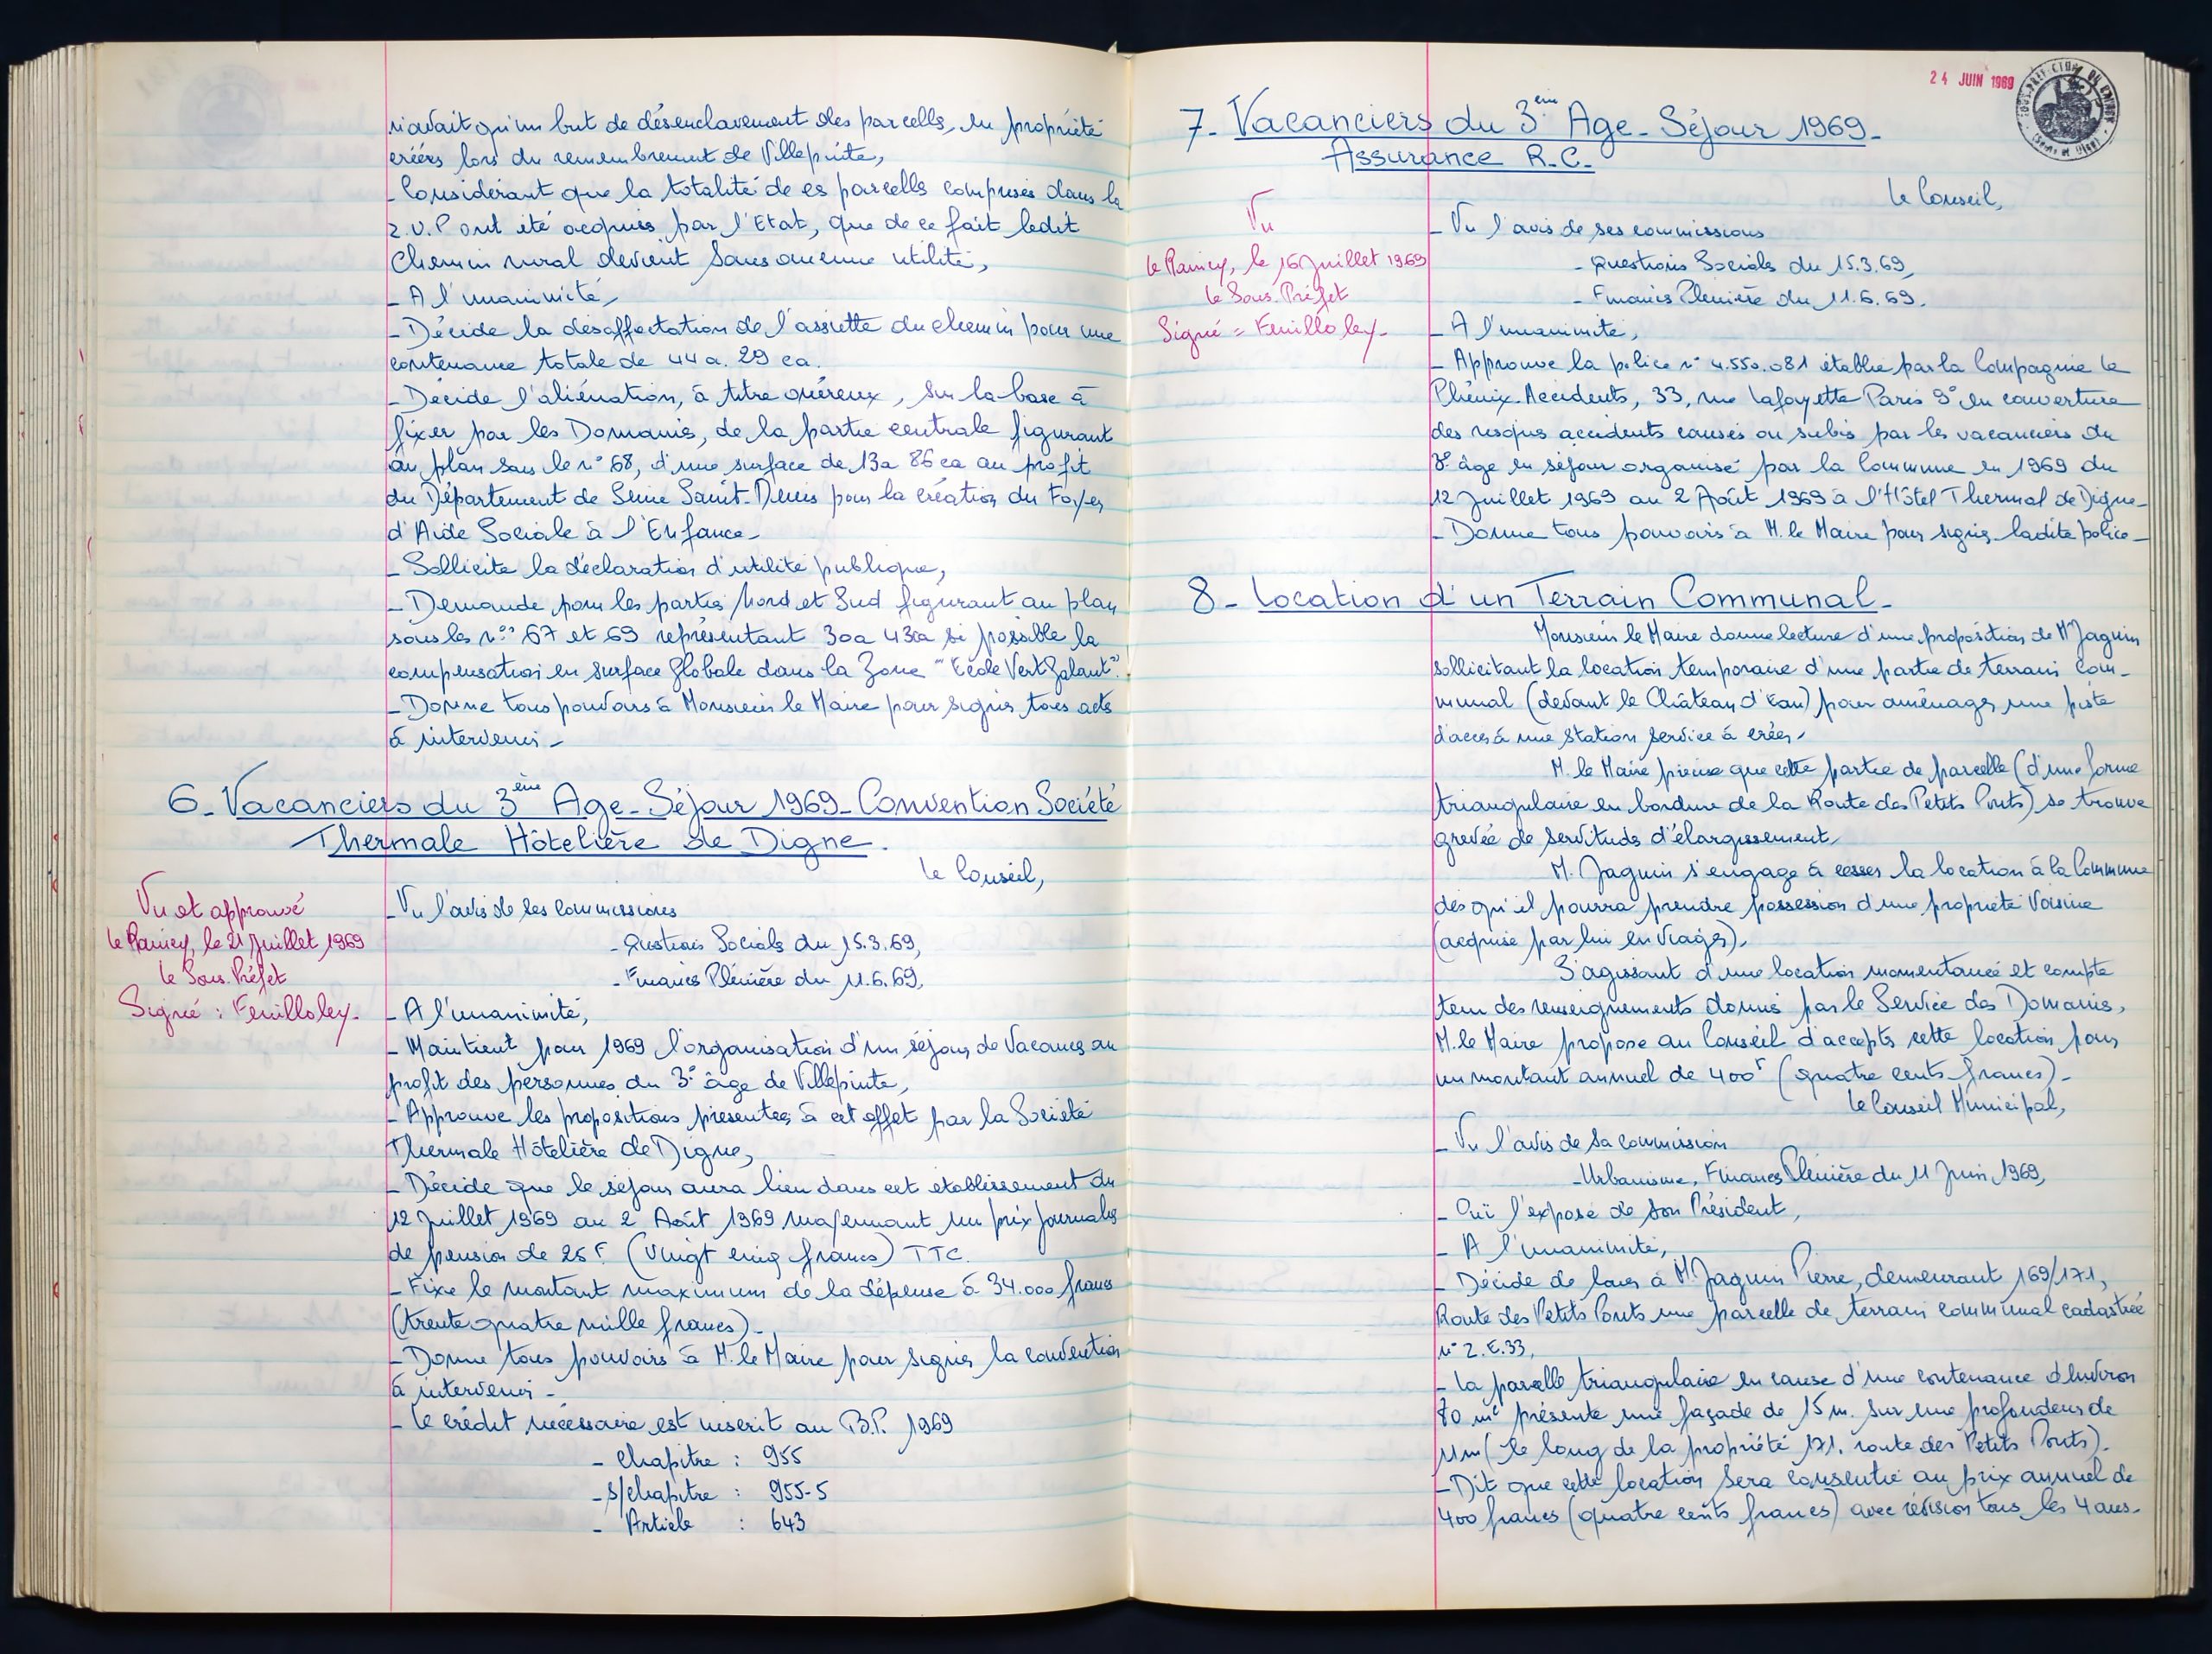 n'avait qu'un but de désenclavement des parcelles, en propriété
créées lors du remembrement de Villepinte,
- Considérant que la totalité de ces parcelles comprises dans la
Z.U.P ont été acquises par l'Etat, que de ce fait ledit
Chemin rural devient sans aucune utilité,
- A l'unanimité,
- Décide la désaffectation de l'assiette du chemin pour une
contenance totale de 44 a. 29 ca.
- Décide l'aliénation, à titre onéreux, sur la base à
fixer par les Domaines, de la partie centrale figurant
au plan sous le n° 68, d'une surface de 13a 86 ca au profit
du Département de Seine Saint-Denis pour la création du Foyer
d'Aide Sociale à l'Enfance-
- Sollicite la déclaration d'utilité publique,
- Demande pour les parties Nord et Sud figurant au plan
sous les n°s 67 et 69 représentant 30a 43ca si possible la
compensation en surface globale dans la Zone "Ecole Vert Galant".
- Donne tous pouvoirs à Monsieur le Maire pour signer tous actes
à intervenir -
6- Vacanciers du 3ème Age - Séjour 1969 - Convention Société
Thermale Hôtelière de Digne.
Le Conseil,
Vu et approuvé
Le Raincy, le 21 Juillet 1969
Le Sous. Préfet
Signé : Feuilloley-
- Vu l'avis de ses commissions
- Questions Sociales du 15.3.69,
- Finances Plénière du 11.6.69,
- A l'unanimité,
- Maintient pour 1969 l'organisation d'un séjour de Vacances au
profit des personnes du 3° âge de Villepinte,
- Approuve les propositions présentées à cet effet par la Société
Thermale Hôtelière de Digne,
- Décide que le séjour aura lieu dans cet établissement du
12 Juillet 1969 au 2 Août 1969 moyennant un prix journalier
de pension de 25F. (vingt cinq francs) TTC.
- Fixe le montant maximum de la dépense à 34.000 francs
(trente quatre mille francs).-
- Donne tous pouvoirs à M. le Maire pour signer la convention
à intervenir -
- Le crédit nécessaire est inscrit au B.P. 1969
- Chapitre : 955
- s/chapitre : 955-5
- Article : 643
24 JUIN 1969
7- Vacanciers du 3ème Age - Séjour 1969-
Assurance R.C.-
Le Conseil,
Vu
Le Raincy, le 16 Juillet 1969
Le Sous. Préfet
Signé = Feuilloley-
- Vu l'avis de ses commissions
- Questions Sociales du 15.3.69,
- Finances Plénière du 11.6.69.
- A l'unanimité,
- Approuve la police n° 4.550.081 établie par la Compagnie Le
Phénix-Accidents, 33, rue Lafayette Paris 9° en couverture
des risques accidents causés ou subis par les vacanciers du
3° âge en séjour organisé par la Commune en 1969 du
12 Juillet 1969 au 2 Août 1969 à l'Hôtel Thermal de Digne-
- Donne tous pouvoirs à M. le Maire pour signer ladite police-
8- Location d'un Terrain Communal-
Monsieur le Maire donne lecture d'une proposition de Mr Jaquin
sollicitant la location temporaire d'une partie de terrain com-
munal (devant le Château d'Eau) pour aménager une piste
d'accès à une station service à créer.
M. le Maire précise que cette partie de parcelle (d'une forme
triangulaire en bordure de la Route des Petits Ponts) se trouve
grevée de servitudes d'élargissement,
M. Jaquin s'engage à cesser la location à la Commune
dès qu'il pourra prendre possession d'une propriété voisine
(acquise par lui en viager).
S'agissant d'une location momentanée et compte
tenu des renseignements donnés par le Service des Domaines,
M. le Maire propose au Conseil d'accepter cette location pour
un montant annuel de 400F (quatre cents francs)-
Le Conseil Municipal,
- Vu l'avis de sa commission
- Urbanisme, Finances Plénière du 11 Juin 1969,
- Ouï l'exposé de son Président,
- A l'unanimité,
- Décide de louer à Mr Jaquin Pierre, demeurant 169/171,
Route des Petits Ponts une parcelle de terrain communal cadastrée
n° 2.E.33,
- La parcelle triangulaire en cause d'une contenance d'environ
70 m² présente une façade de 15 m. sur une profondeur de
11m (le long de la propriété 171. route des Petits Ponts).
- Dit que cette location sera consentie au prix annuel de
400 francs (quatre cents francs) avec révision tous les 4 ans-